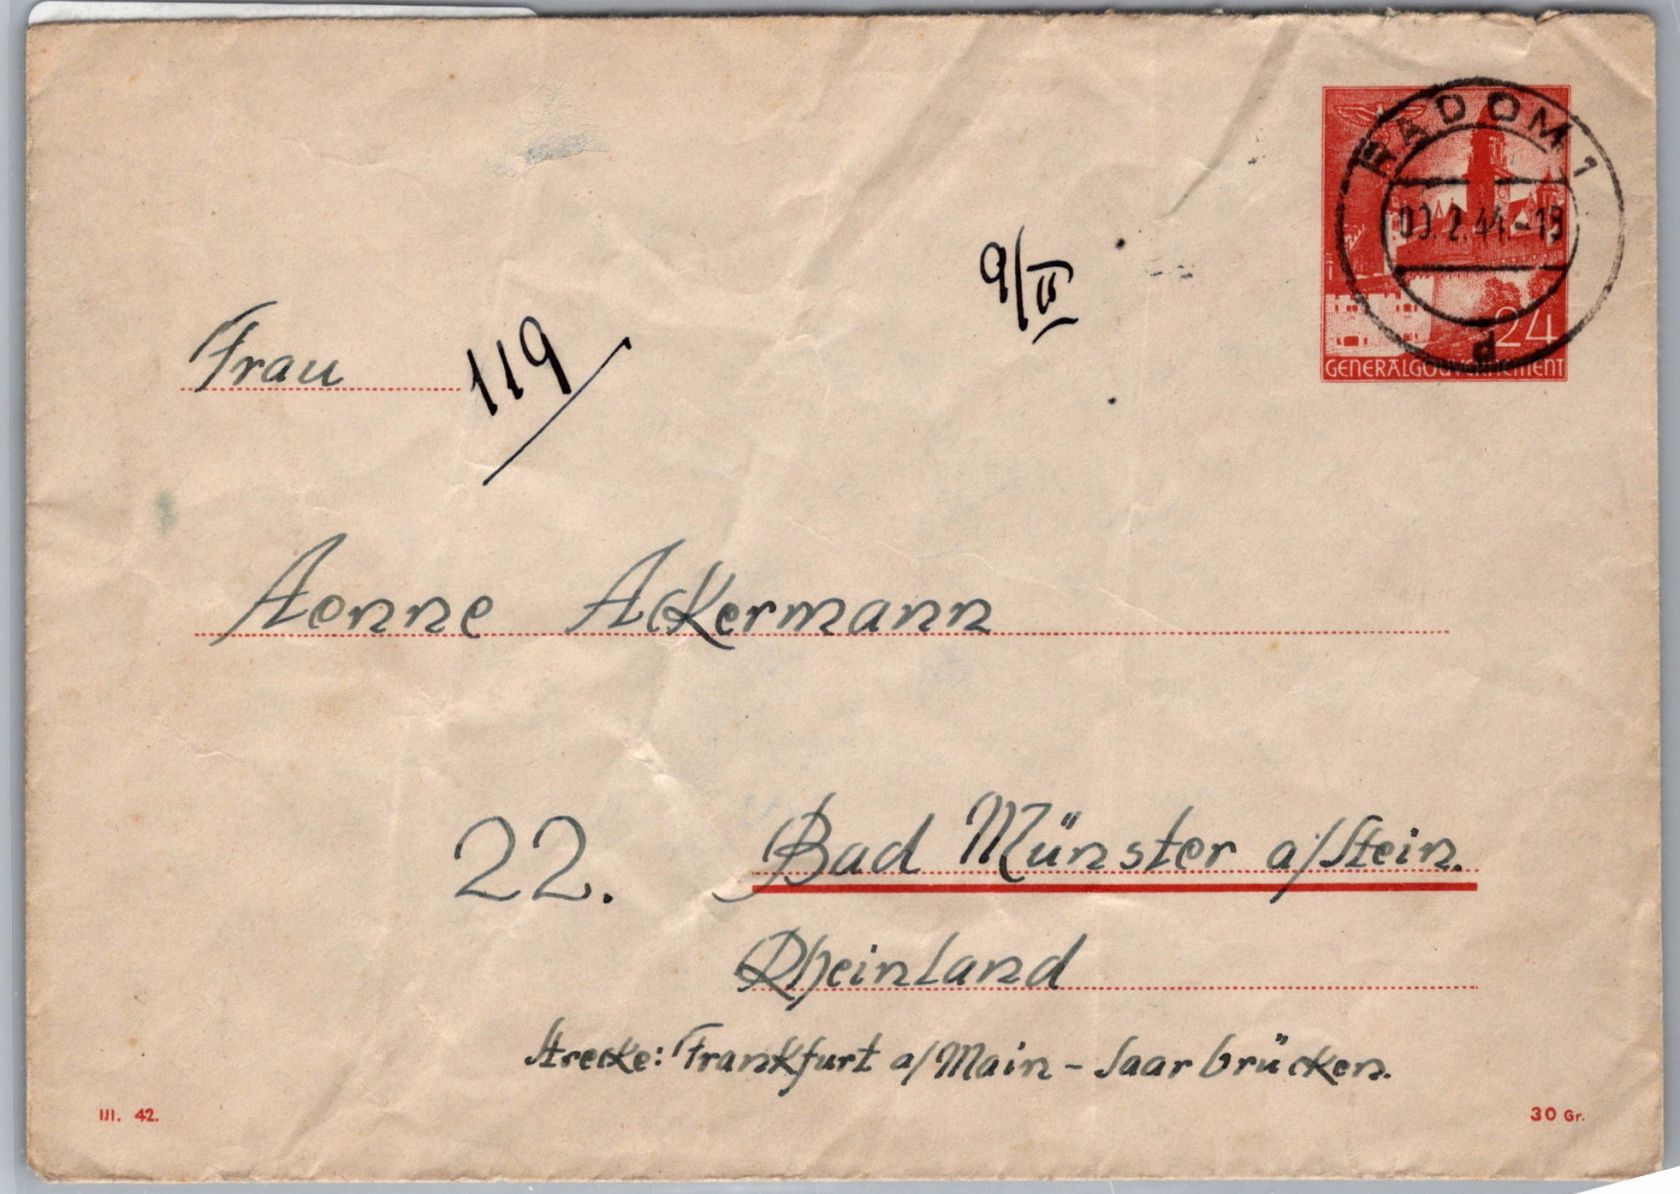 RADOM 1
09.2.44.-18
d
24
GENERALGOUVERNEMENT
9/II
Frau
119
Aenne Ackermann
22. Bad Münster a/Stein.
Rheinland
Strecke: Frankfurt a/Main - Saarbrücken.
III. 42.
30 Gr.